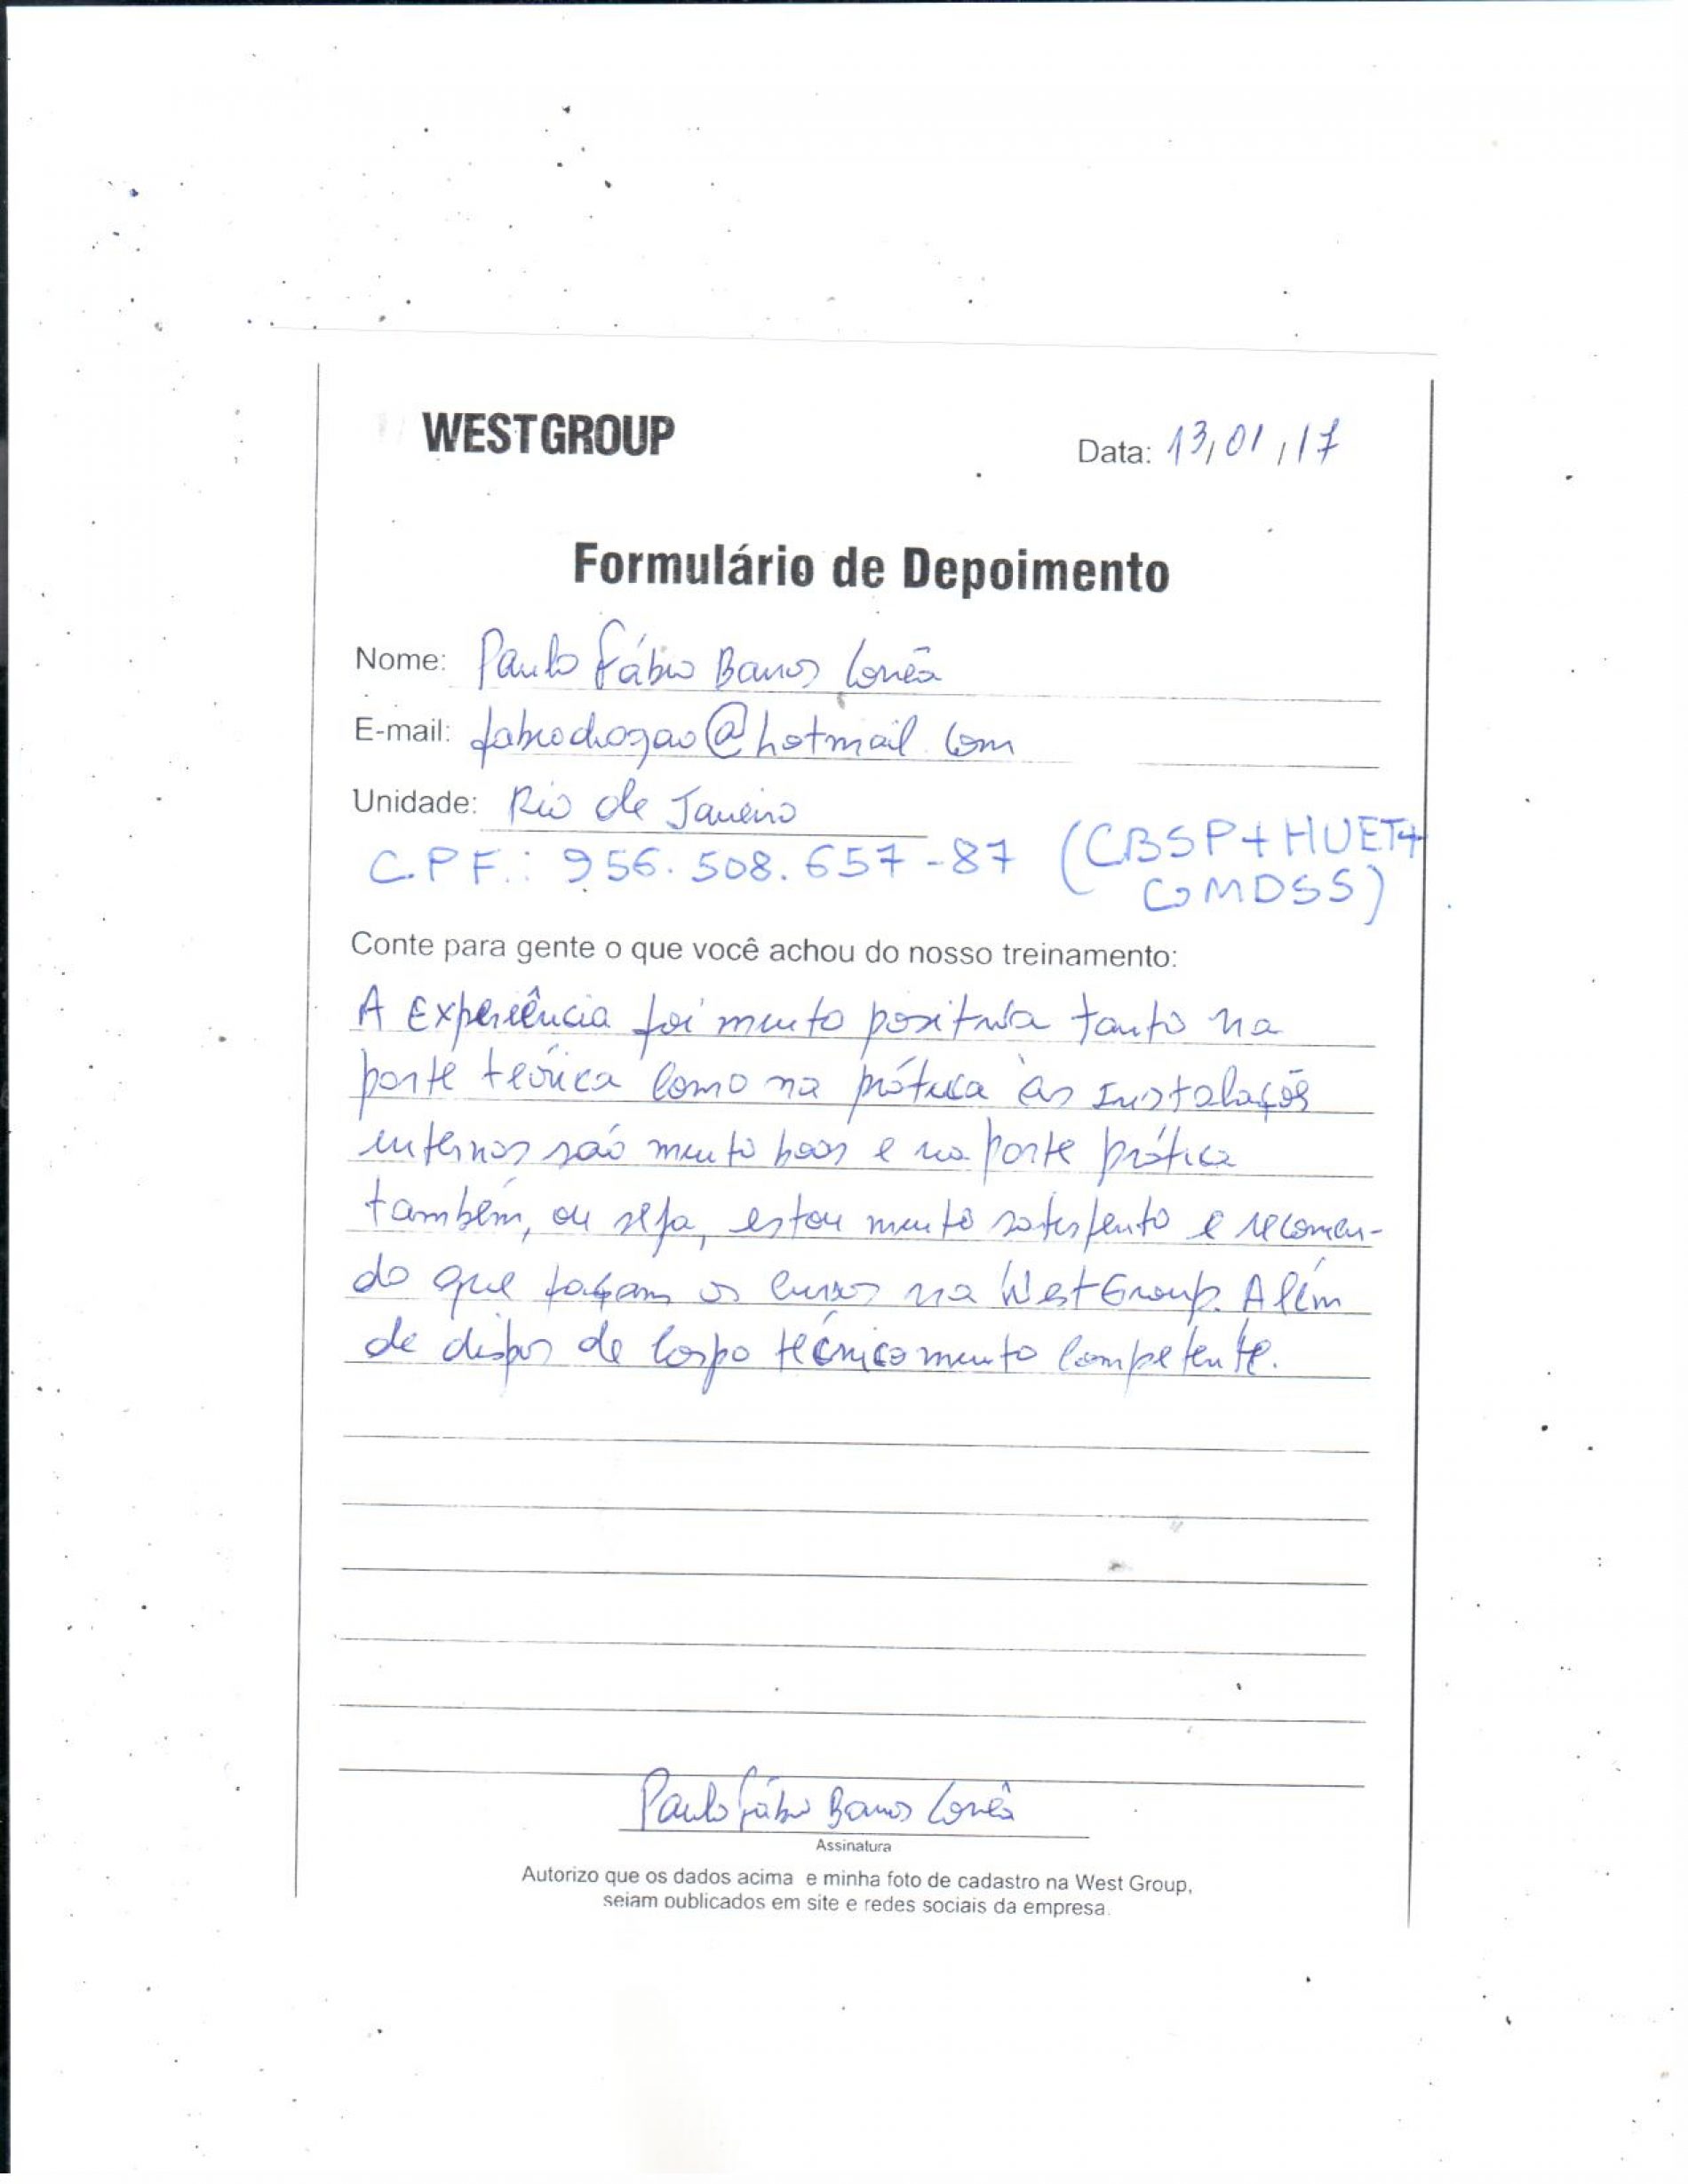 WESTGROUP
Data: 13/01/17
Formulário de Depoimento
Nome: Paulo Fábio Barros Corrêa
E-mail: @hotmail.com
Unidade: Rio de Janeiro
C.P.F.: 956.508.657-87 (CBSP+HUET+
GMDSS)
Conte para gente o que você achou do nosso treinamento:
A Experiência foi muito positiva tanto na
parte teórica como na prática as Instalações
internas são muito boas e na parte prática
também, ou seja, estou muito satisfeito e recomen-
do que façam os cursos na WestGroup. Além
de dispor de corpo técnico muito competente.
Paulo Fábio Barros Corrêa
Assinatura
Autorizo que os dados acima e minha foto de cadastro na West Group,
sejam publicados em site e redes sociais da empresa.